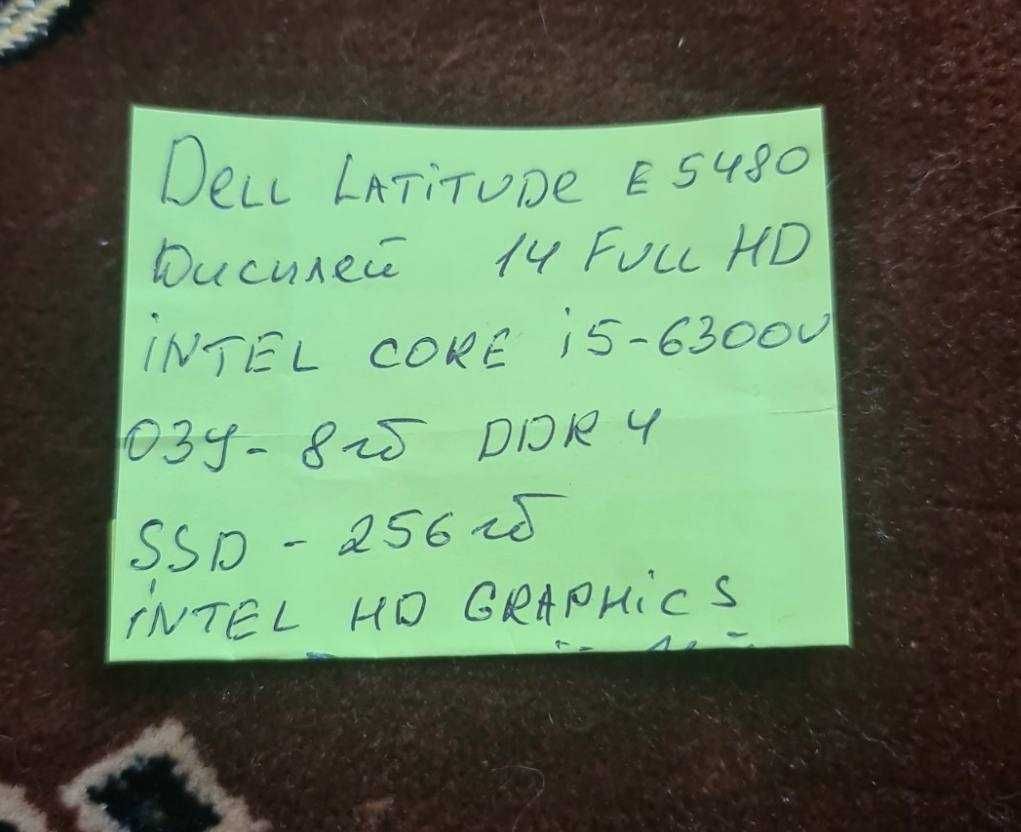 Dell Latitude E 5480
Дисплей 14 Full HD
iNTEL CORE i5-6300U
ОЗУ- 8гб DDR 4
SSD - 256 гб
iNTEL HD GRAPHiCS